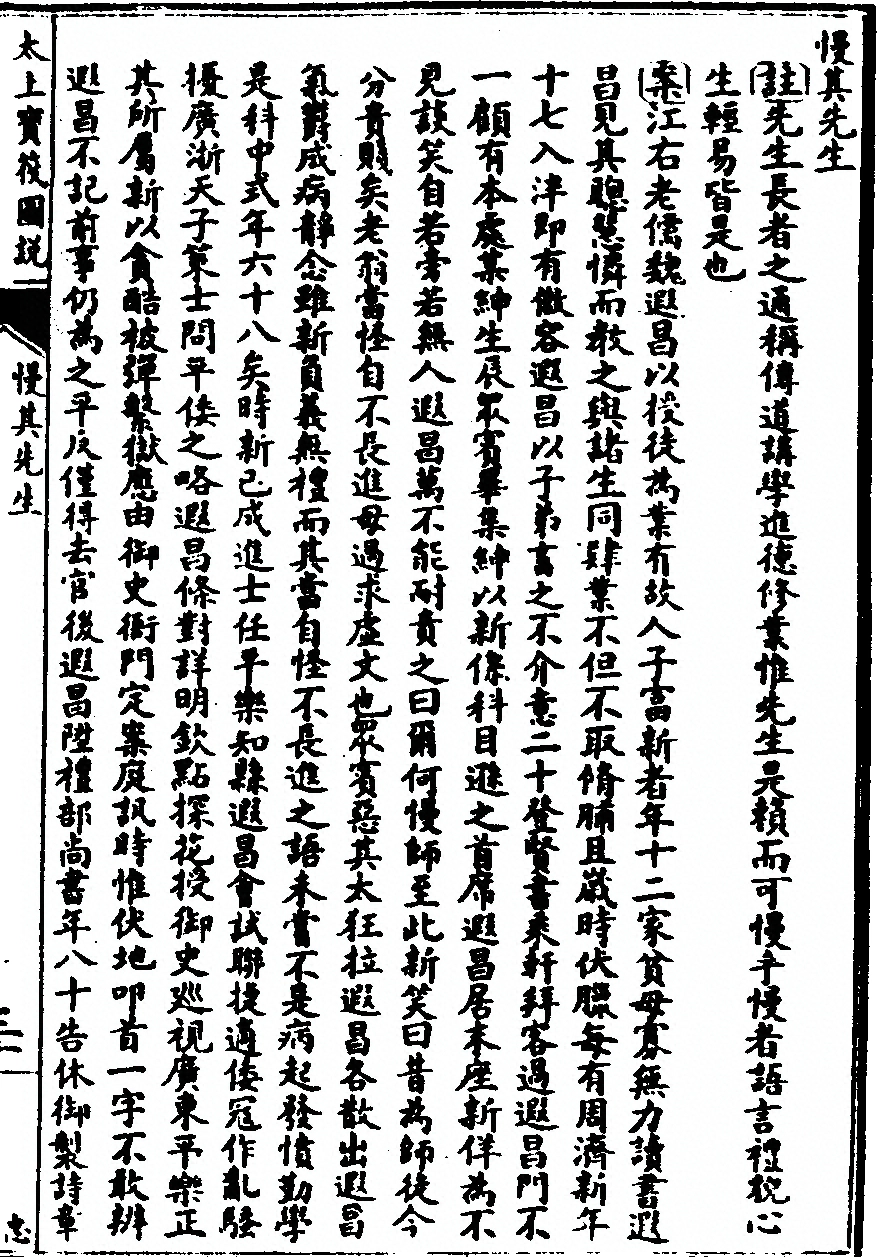 慢其先生
註先生長者之通稱傳道講學進德修業惟先生是賴而可慢乎慢者語言禮貌心
生輕易皆是也
案江右老儒魏遐昌以授徒為業有故人子富新者年十二家貧母寡無力讀書遐
昌見其聰慧憐而教之與諸生同肄業不但不取脩脯且歲時伏臘每有周濟新年
十七入泮即有傲容遐昌以子弟畜之不介意二十登賢書乘軒拜客過遐昌門不
一顧有本處某紳生辰眾賓畢集紳以新係科目遜之首席遐昌居末座新佯為不
見談笑自若旁若無人遐昌萬不能耐責之曰爾何慢師至此新笑曰昔為師徒今
分貴賤矣老翁當怪自不長進毋過求虛文也眾賓惡其太狂拉遐昌各散出遐昌
氣鬱成病靜念雖新負義無禮而其當自怪不長進之語未嘗不是病起發憤勤學
是科中式年六十八矣時新已成進士任平樂知縣遐昌會試聯捷適倭寇作亂騷
擾廣浙天子策士問平倭之略遐昌條對詳明欽點探花授御史巡視廣東平樂正
其所屬新以貪酷被彈繫獄應由御史衙門定案庭訊時惟伏地叩首一字不敢辨
遐昌不記前事仍為之平反僅得去官後遐昌陞禮部尚書年八十告休御製詩章
太上寶筏圖説
慢其先生
忠